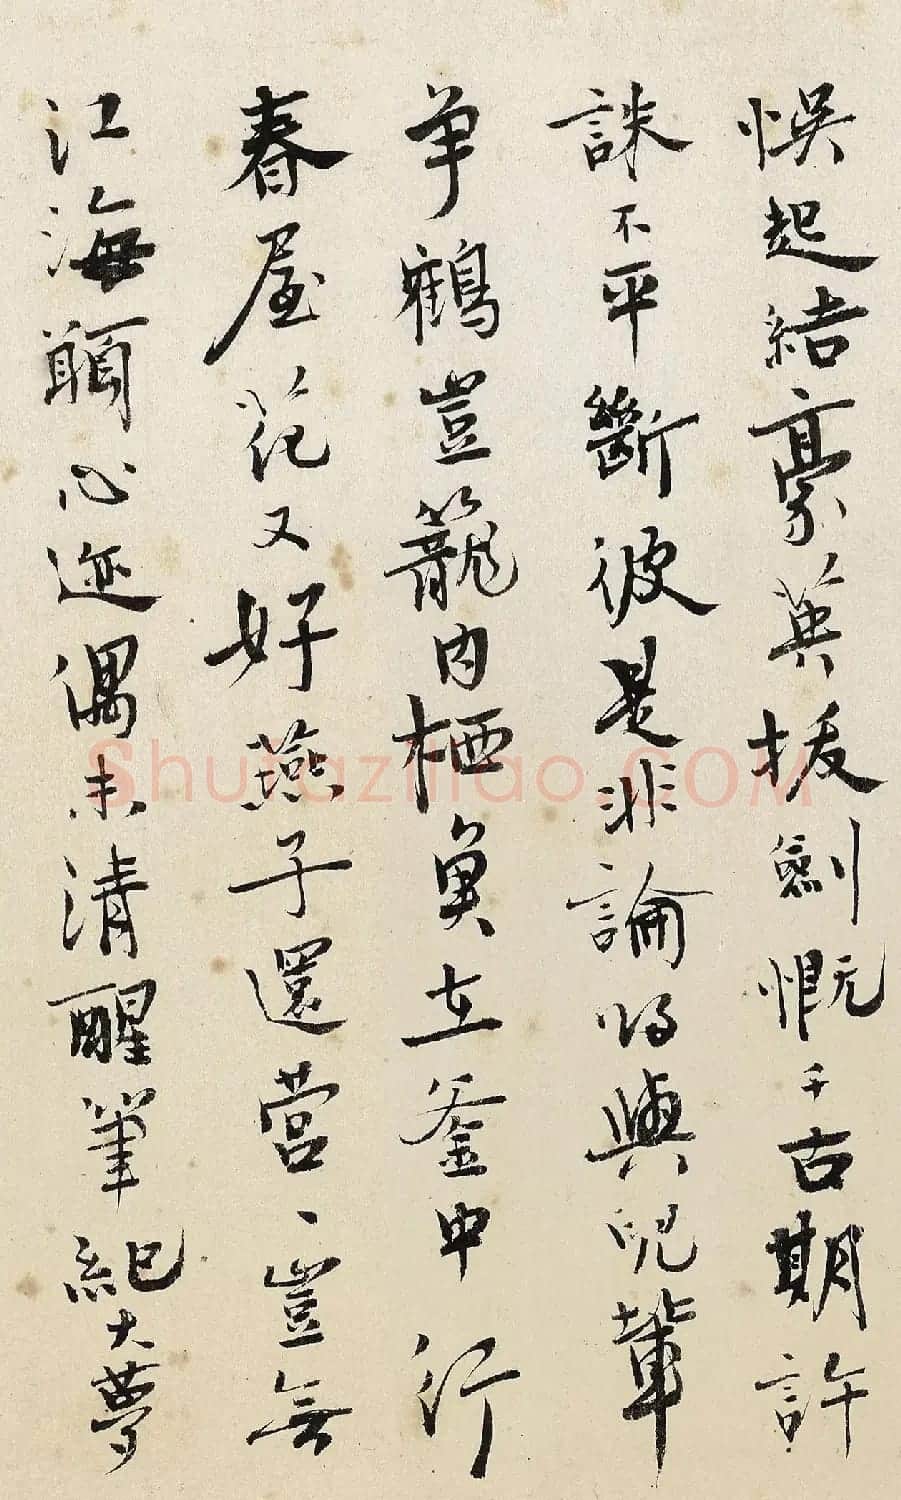 悮起結豪英拔劍慨千古期許
誅不平斷彼是非論將與兒輩
争鶴豈籠内栖魚在釜中行
春屋花又好燕子還營、豈無
江海願心迹偶未清醒筆紀大夢
Shufaziliao.COM